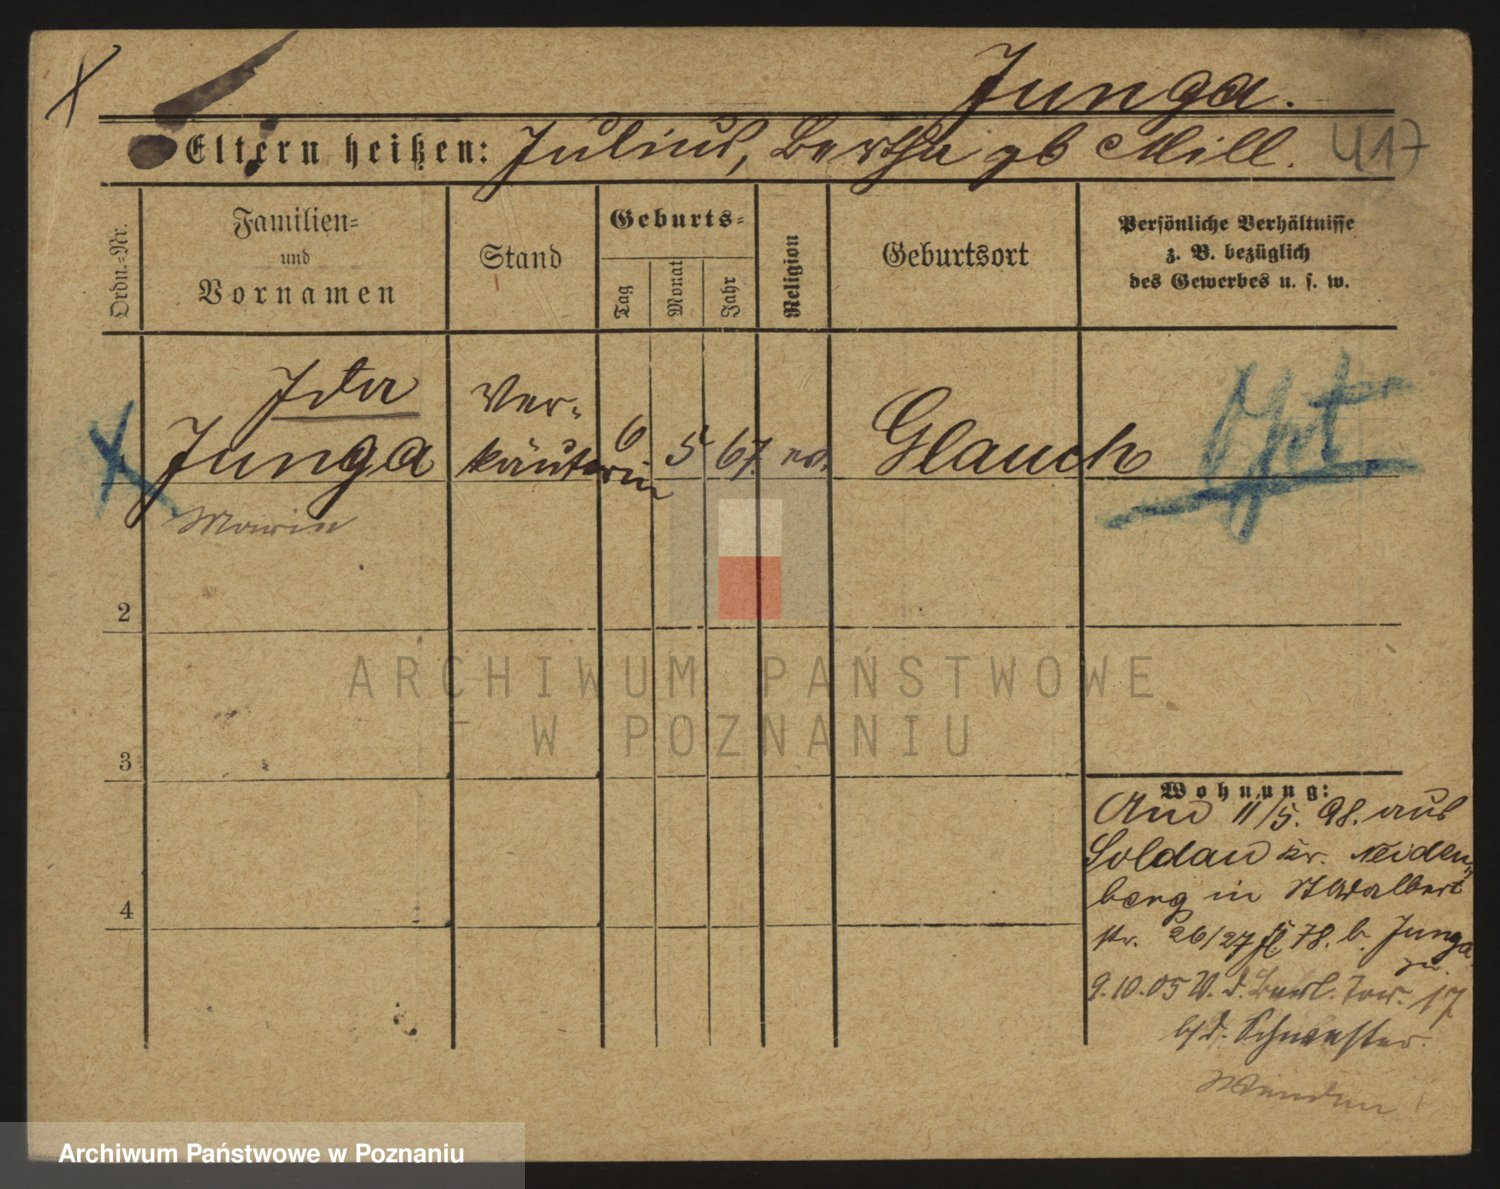 Junga.
Eltern heißen: Julius, Bertha gb Mill.
417
Ordn.-Nr.
Familien-
und
Vornamen
Stand
Geburts-
Tag
Monat
Jahr
Religion
Geburtsort
Persönliche Verhältnisse
z. B. bezüglich
des Gewerbes u. s. w.
Ida
Junga
Marie
Ver-
käuferin
6
5
67.
Glauch
2
3
4
ARCHIWUM PAŃSTWOWE
W POZNANIU
Wohnung:
11/5. 98. aus
Soldau Kr. Neiden-
berg in St Adalbert
str. 26/27 78. b. Junga
9.10.05 V. d. Berl. Tor. 17
b/d. Schwester.
Wenden
Archiwum Państwowe w Poznaniu